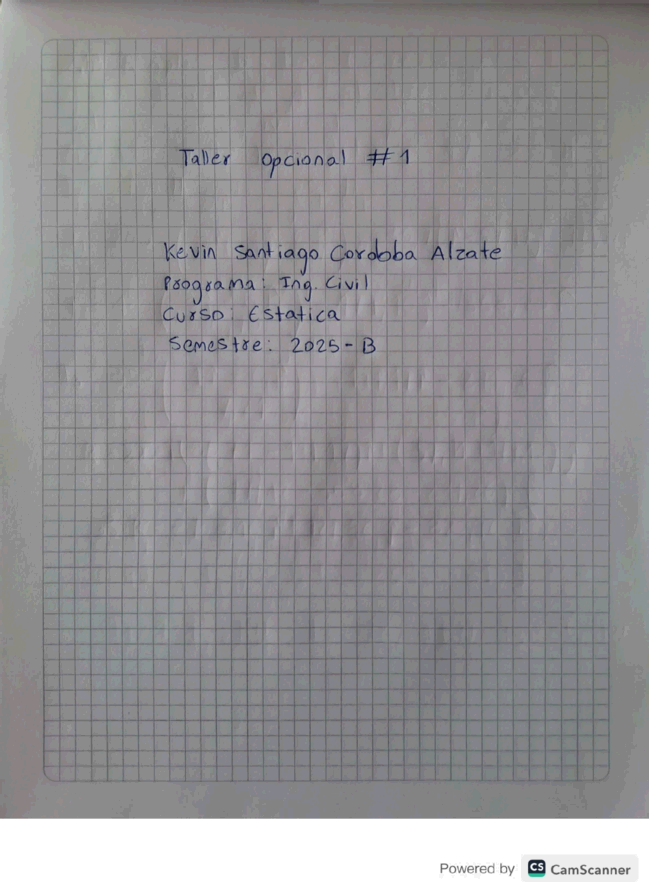 Taller opcional #1
Kevin Santiago Cordoba Alzate
Programa: Ing. Civil
Curso: Estatica
Semestre: 2025-B
Powered by CS CamScanner